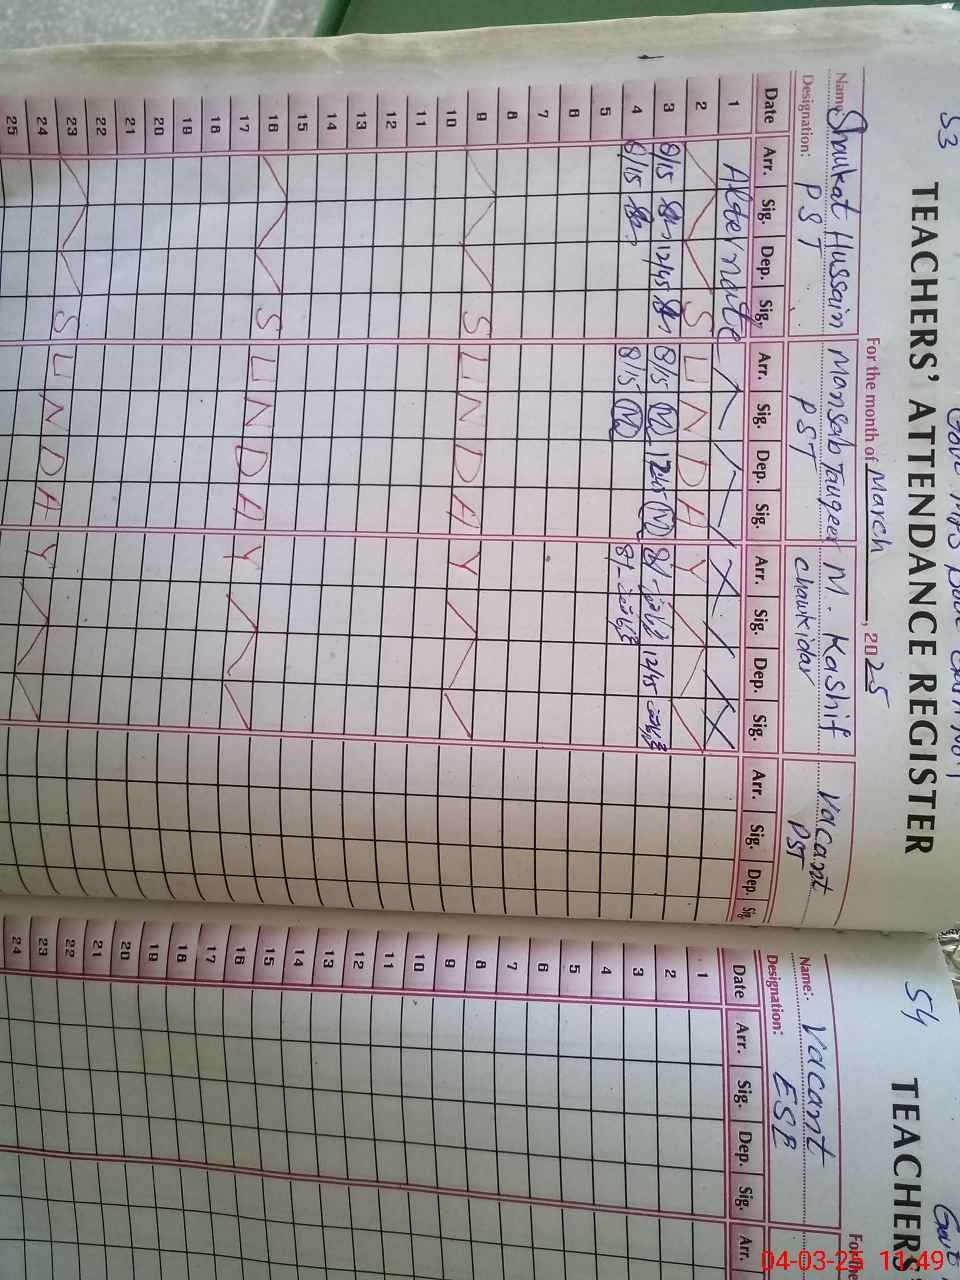 53
TEACHERS' ATTENDANCE REGISTER
For the month of March, 2025
Name: Shaukat Hussain Mansab Tauqeer M. Kashif Vacant
Designation: PST PST Chawkidar PST
Date Arr. Sig. Dep. Sig. Arr. Sig. Dep. Sig. Arr. Sig. Dep. Sig. Arr. Sig. Dep. Sig.
1 Alternate
2 SUNDAY
3 8/15 12/45 8/15 1245 8/- 12/45
4 8/15 8/15 8/-
5
6
7
8
9 SUNDAY
10
11
12
13
14
15
16 SUNDAY
17
18
19
20
21
22
23 SUNDAY
24
25
54
TEACHERS'
For the
Name:- Vacant
Designation: ESE
Date Arr. Sig. Dep. Sig. Arr.
1
2
3
4
5
6
7
8
9
10
11
12
13
14
15
16
17
18
19
20
21
22
23
24
04-03-25 11:49